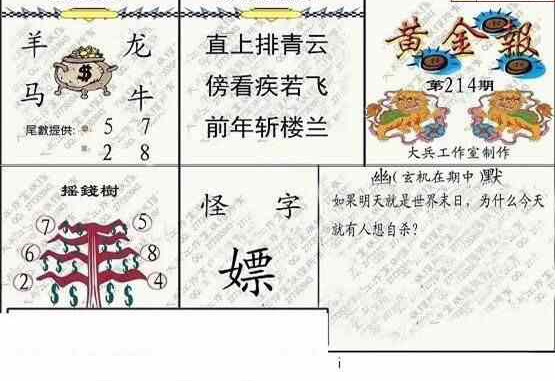 羊 龙
马 牛
尾數提供: 5 7
2 8
直上排青云
傍看疾若飞
前年斩楼兰
黄金報
第214期
大兵工作室制作
摇錢樹
7 5
6 8
2 4
怪 字
嫖
幽(玄机在期中 默
如果明天就是世界末日，为什么今天
就有人想自杀?
i